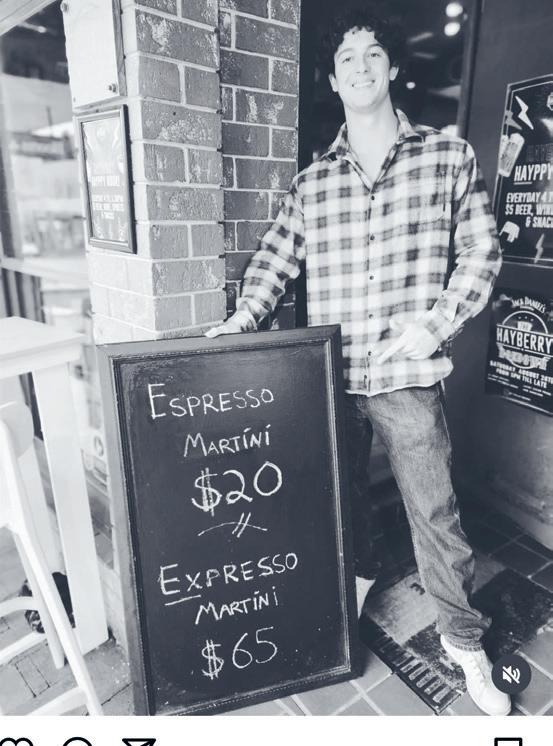 ESPRESSO
MARTINI
$20
EXPRESSO
MARTINI
$65
HAYPPY
EVERYDAY 4
$5 BEER, WIN
& SNAC
JACK DANIEL'S
THE
HAYBERRY
SATURDAY AUGUST
FROM 5PM TILL LATE